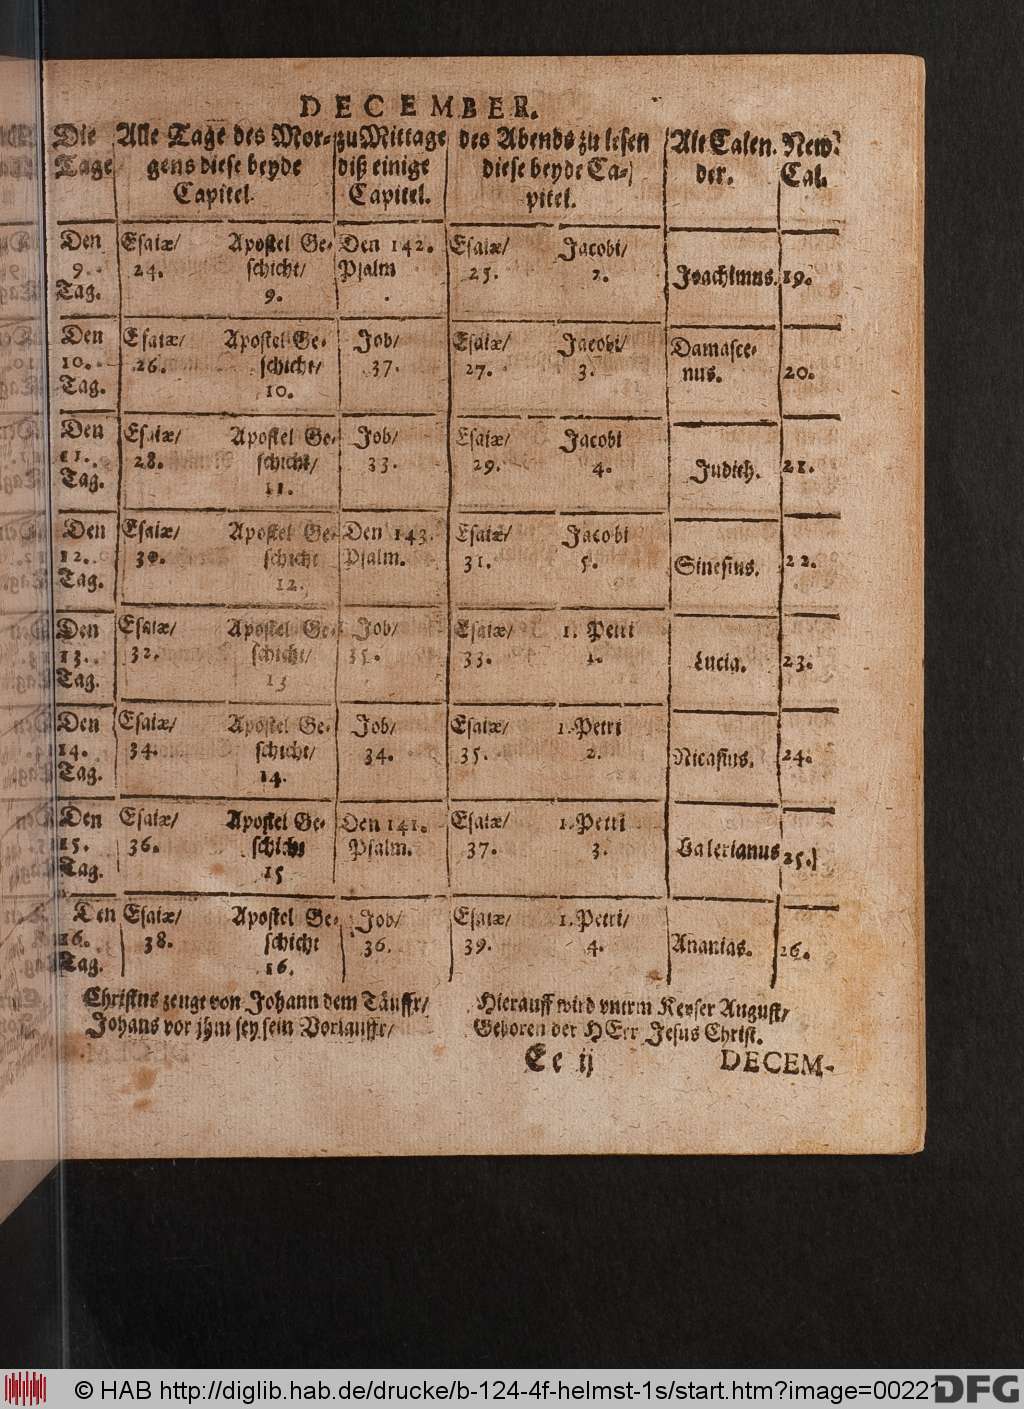 DECEMBER.
Die Alle Tage des Mor- zu Mittage des Abends zu lesen Alt Calen. New.
Tage gens diese beyde diß einige diese beyde Ca- der. Cal.
Capitel. Capitel. pitel.
Den Esaiæ/ Apostel Ge- Den 142. Esaiæ/ Jacobi/
9. 24. schicht/ Psalm 25. 2. Joachimus. 19.
Tag. 9.
Den Esaiæ/ Apostel Ge- Job/ Esaiæ/ Jacobi/ Damasce-
10. 26. schicht/ 37. 27. 3. nus. 20.
Tag. 10.
Den Esaiæ/ Apostel Ge- Job/ Esaiæ/ Jacobi
11. 28. schicht/ 33. 29. 4. Judith. 21.
Tag. 11.
Den Esaiæ/ Apostel Ge- Den 143. Esaiæ/ Jacobi
12. 30. schicht Psalm. 31. 5. Sinesius. 22.
Tag. 12.
Den Esaiæ/ Apostel Ge- Job/ Esaiæ/ 1. Petri
13. 32. schicht/ 35. 33. 1. Lucia. 23.
Tag. 13
Den Esaiæ/ Apostel Ge- Job/ Esaiæ/ 1. Petri
14. 34. schicht/ 34. 35. 2. Nicasius. 24.
Tag. 14.
Den Esaiæ/ Apostel Ge- Den 141. Esaiæ/ 1. Petri
15. 36. schicht Psalm. 37. 3. Valerianus 25.
Tag. 15
Den Esaiæ/ Apostel Ge- Job/ Esaiæ/ 1. Petri/
16. 38. schicht 36. 39. 4. Ananias. 26.
Tag. 16.
Christus zeuge von Johann dem Täuffr/ Hierauff wird vnterm Keyser August/
Johans vor jhm sey sein Vorlauffr/ Geboren der HErr Jesus Christ.
Ee ij DECEM-
© HAB http://diglib.hab.de/drucke/b-124-4f-helmst-1s/start.htm?image=00221
DFG